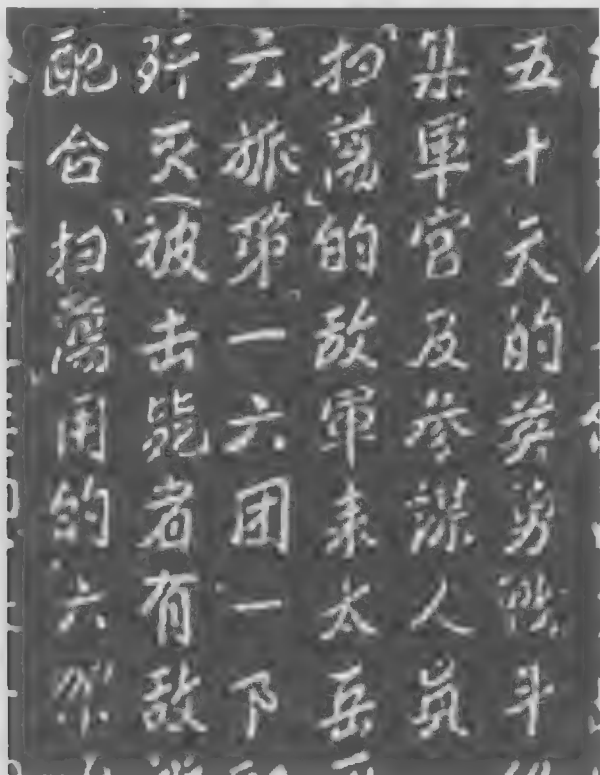 五十天的英勇戰斗
集軍官及参謀人員
“扫蕩”的敌軍来太岳
六旅第一六团一下
歼灭，被击毙者有敌
配合“扫蕩”用的六架